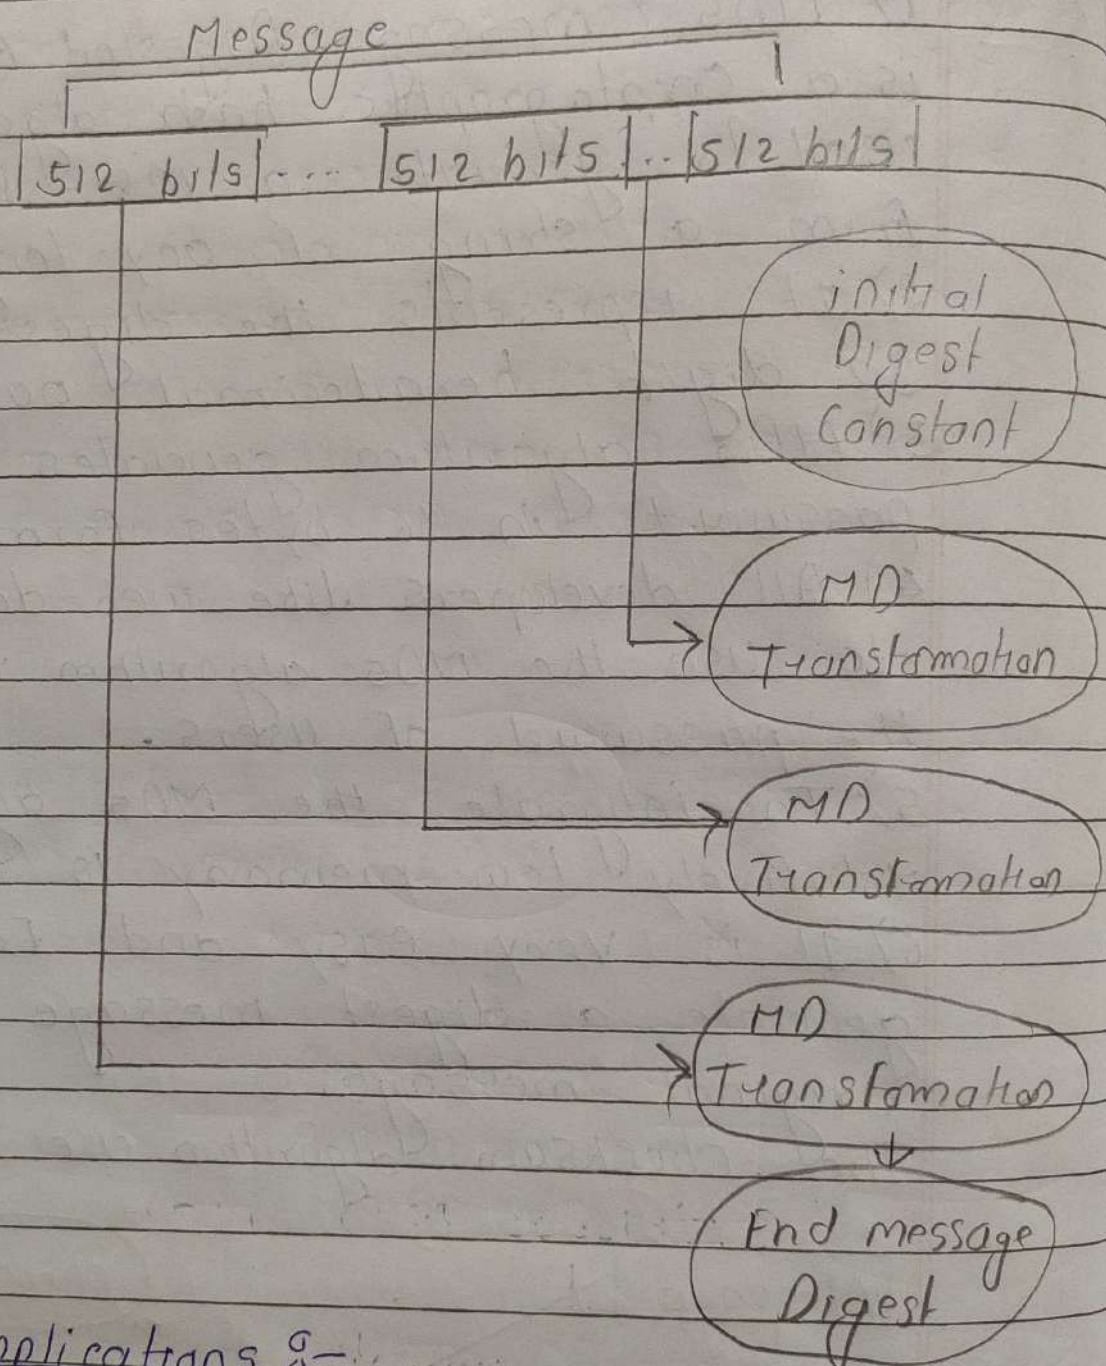 Message
512 bits .... 512 bits .. 512 bits
initial
Digest
Constant
MD
Transformation
MD
Transformation
MD
Transfomation
End message
Digest
plications :-